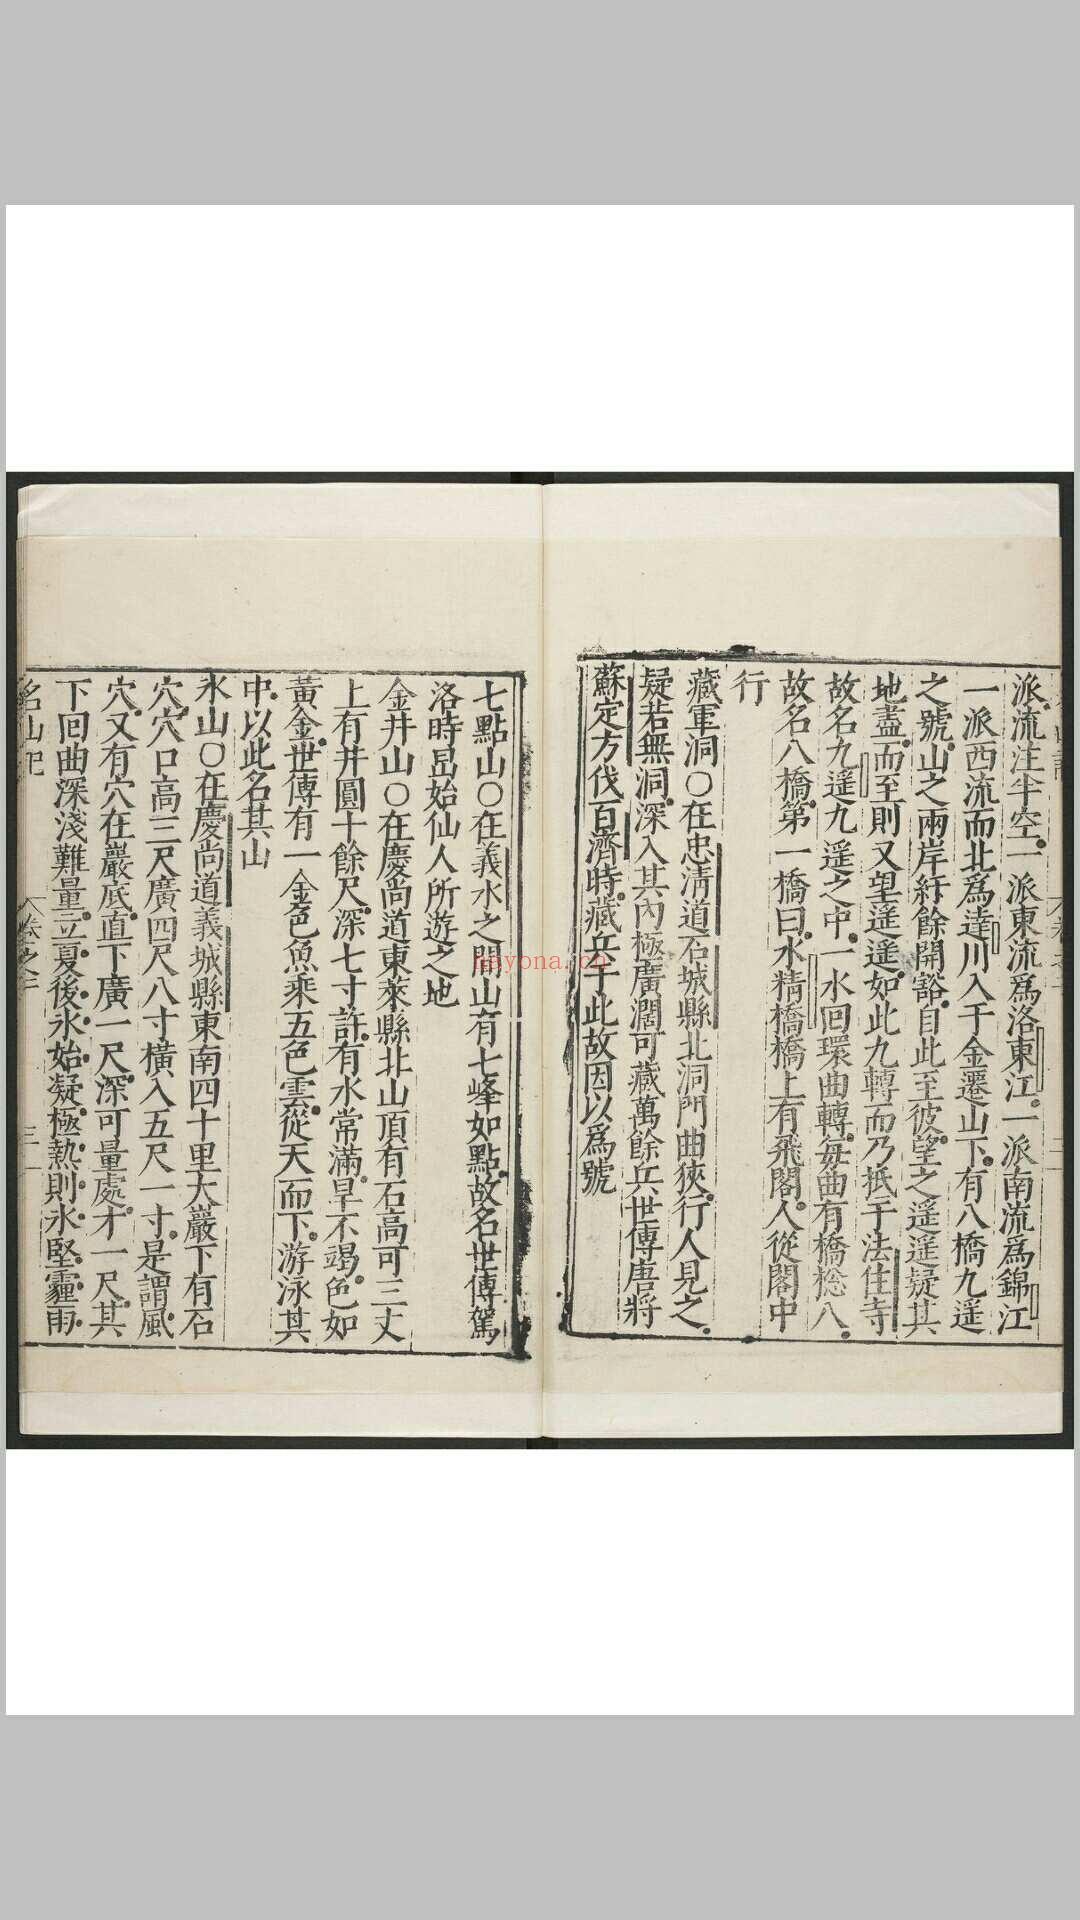 派流注半空一派東流爲洛東江一派南流爲錦江
一派西流而北爲達川入于金遷山下有八橋九遥
之號山之兩岸紆餘開豁自此至彼望之遥遥疑其
地盡而至則又望遥遥如此九轉而乃抵于法住寺
故名九遥九遥之中一水回環曲轉每曲有橋捴八
故名八橋第一橋曰水精橋橋上有飛閣人從閣中
行
藏軍洞○在忠淸道石城縣北洞門曲狹行人見之
疑若無洞深入其內極廣濶可藏萬餘兵世傳唐將
蘇定方伐百濟時藏兵于此故因以爲號
七點山○在義水之開山有七峰如點故名世傳駕
洛時昌始仙人所遊之地
金井山○在慶尚道東萊縣北山頂有石高可三丈
上有井圓十餘尺深七寸許有水常滿旱不竭色如
黃金世傳有一金色魚乘五色雲從天而下游泳其
中以此名其山
氷山○在慶尚道義城縣東南四十里大巖下有石
穴穴口高三尺廣四尺八寸橫入五尺一寸是謂風
穴又有穴在巖底直下廣一尺深可量處才一尺其
下回曲深淺難量立夏後氷始凝極熱則氷堅霾雨
名山記
卷之三
三
nayona.cn